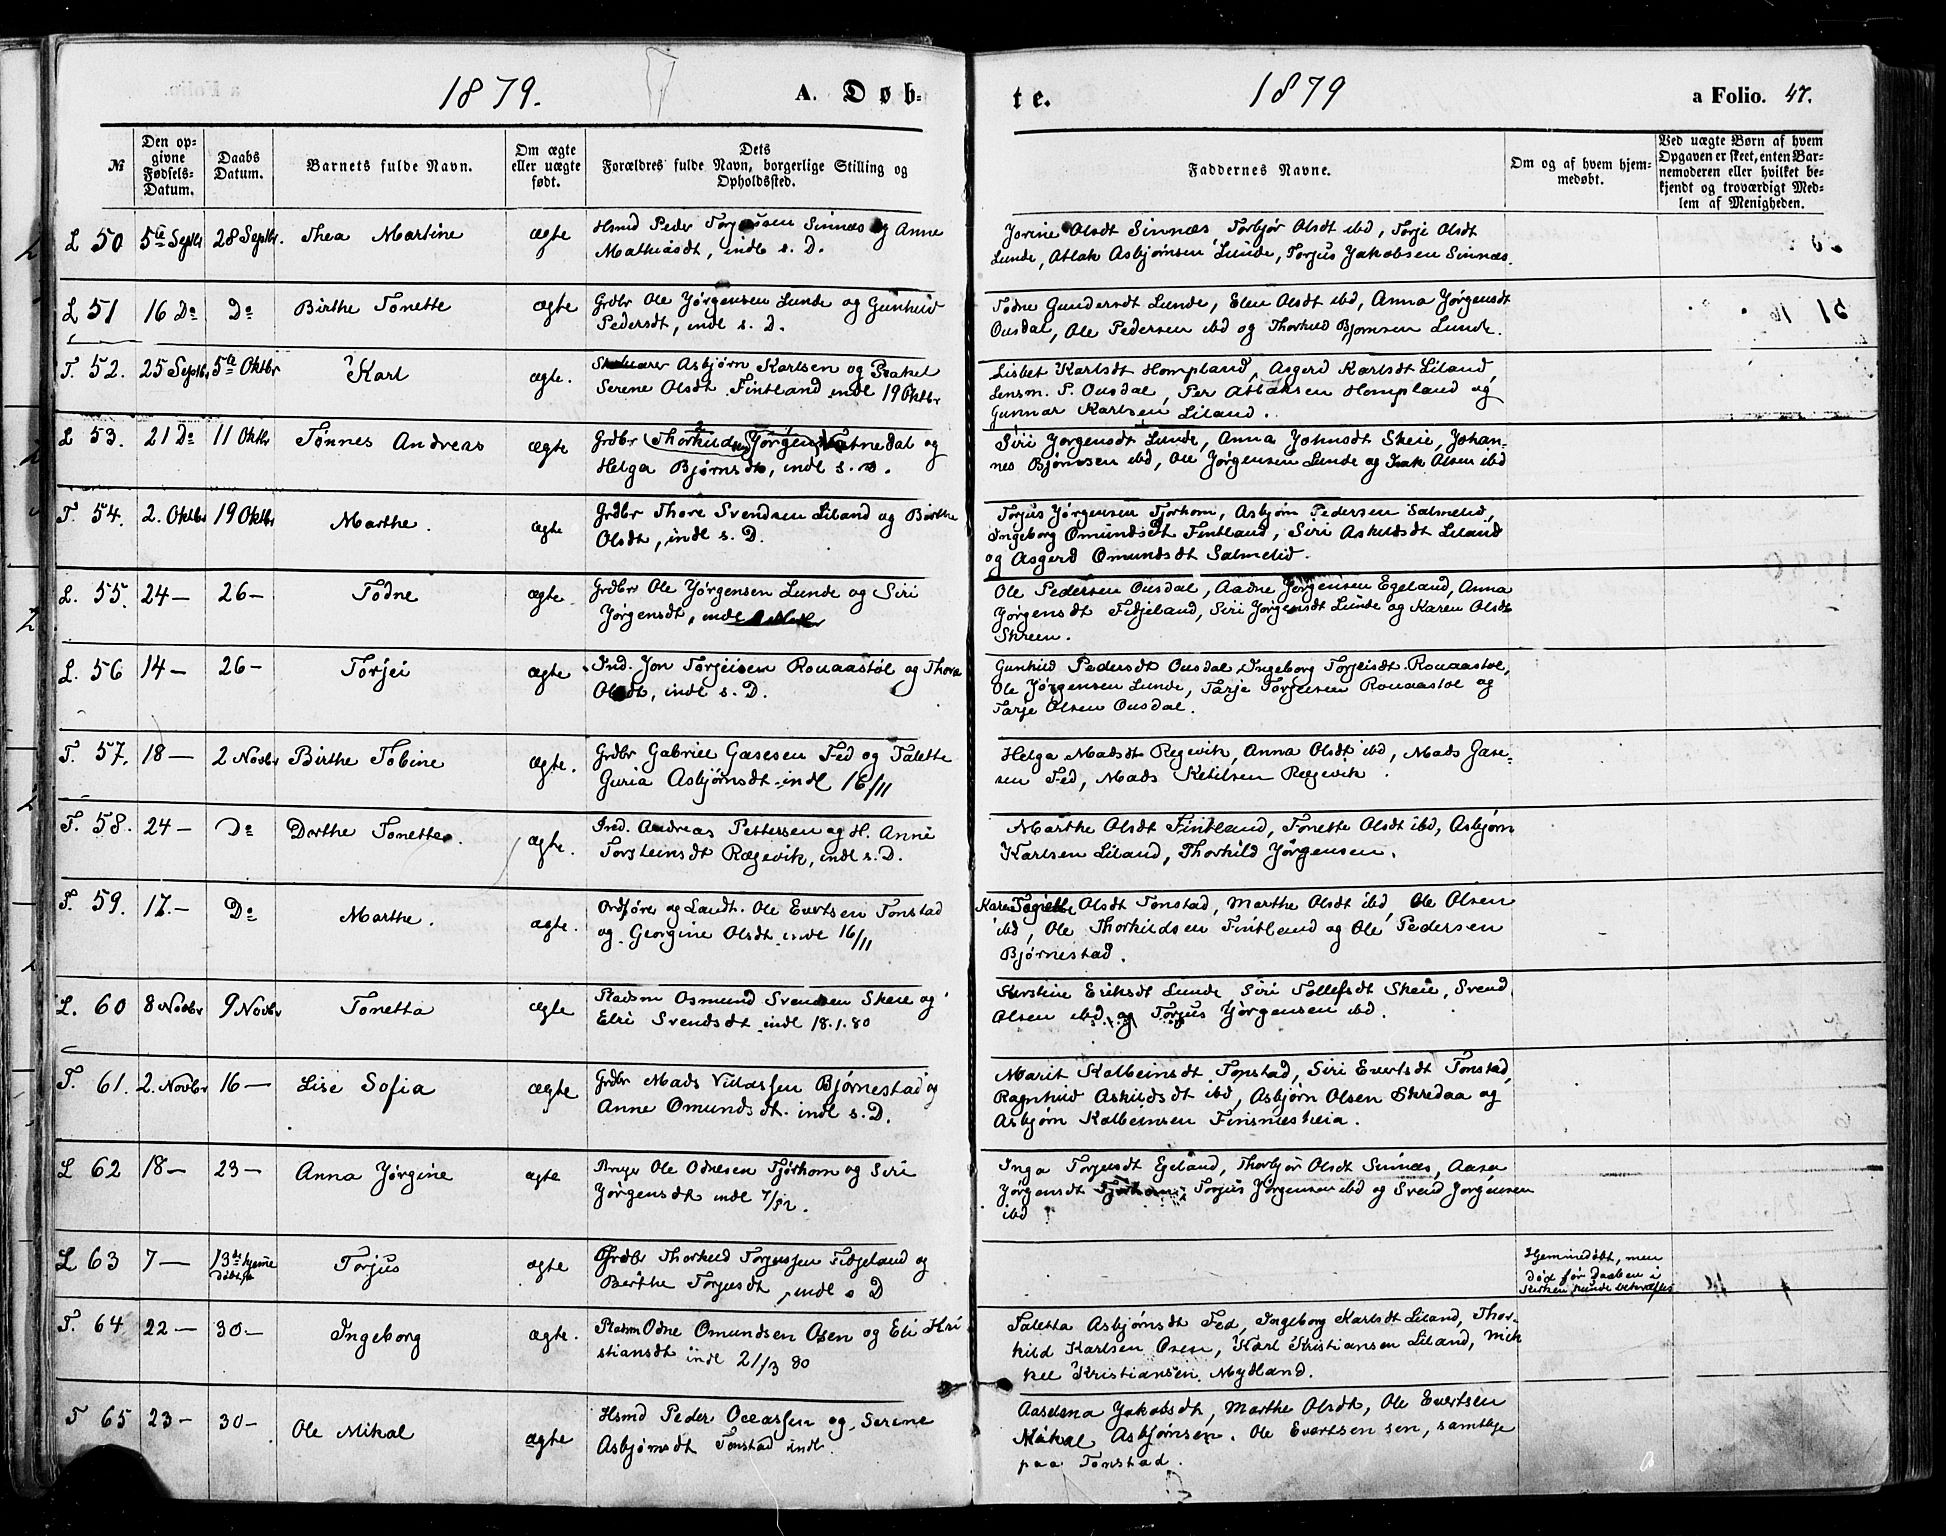 1879.
A. Døb-
te.
1879
a Folio. 47.
№
Den op-
givne
Fødsels-
Datum.
Daabs
Datum.
Barnets fulde Navn.
Om ægte
eller uægte
født.
Dets
Forældres fulde Navn, borgerlige Stilling og
Opholdssted.
Faddernes Navne.
Om og af hvem hjem-
medøbt.
Ved uægte Børn af hvem
Opgaven er skeet, enten Bar-
nemoderen eller hvilket be-
kjendt og troværdigt Med-
lem af Menigheden.
L 50 5te Septbr 28 Septbr. Thea Martine ægte
Hsmd Peder Torjussen Sinnæs og Anne
Mathiasdt, indl s. D.
Jorine Olsdt Sinnæs Torbjør Olsdt ibd, Torje Olsdt
Lunde, Atlak Asbjørnsen Lunde, Torjus Jakobsen Sinnæs.
L 51 16 Do Do Birthe Tonette ægte
Grdbr Ole Jørgensen Lunde og Gunhild
Pedersdt, indl s. D.
Todne Gundersdt Lunde, Elen Olsdt ibd, Anna Jørgensdt
Ousdal, Ole Pedersen ibd og Thorkild Bjørnsen Lunde.
T. 52. 25 Septbr 5te Oktbr Karl ægte.
Asbjørn Karlsen og Rakel
Serene Olsdt Fintland indl 19 Oktbr
Lisbet Karlsdt Hompland, Asgerd Karlsdt Liland,
Lensm. P. Ousdal, Per Atlaksen Hompland og
Gunnar Karlsen Liland.
L 53. 21 Do 11 Oktbr Tønnes Andreas ægte
Grdbr Thorkild Jørgensen Netnedal og
Helga Bjørnsdt, indl s. D.
Siri Jørgensdt Lunde, Anna Johnsdt Skeie, Johan-
nes Bjørnsen ibd, Ole Jørgensen Lunde og Isak Olsen ibd
T. 54. 2. Oktbr 19 Oktbr Marthe. ægte
Grdbr Thore Svendsen Liland og Birthe
Olsdt, indl s. D.
Torjus Jørgensen Tjorhom, Asbjørn Pedersen Salmelid,
Ingeborg Omundsdt Fintland, Siri Askildsdt Liland
og Asgerd Omundsdt Salmelid.
L. 55. 24 — 26 — Todne ægte
Grdbr Ole Jørgensen Lunde og Siri
Jørgensdt, indl
Ole Pedersen Ousdal, Aadne Jørgensen Egeland, Anna
Jørgensdt Fidjeland, Siri Jørgensdt Lunde og Karen Olsdt
Skreen.
L. 56 14 — 26 — Torjei ægte
Ind. Jon Torjeisen Rouaastøl og Thora
Olsdt, indl s. D.
Gunhild Pedersdt Ousdal, Ingeborg Torjeisdt Rouaastøl,
Ole Jørgensen Lunde, Tarje Torjeisen Rouaastøl og
Tarje Olsen Ousdal.
T. 57. 18 — 2 Novbr Birthe Tobine ægte.
Grdbr Gabriel Gasesen Fed og Talette
Guria Asbjørnsdt indl 16/11
Helga Madsdt Regevik, Anna Olsdt ibd, Mads Gase-
sen Fed, Mads Ketilsen Rægevik.
T. 58. 24 — Do Dorthe Tonette. ægte.
Ind. Andreas Pettersen og H. Anne
Torsteinsdt Rægevik, indl s. D.
Marthe Olsdt Fintland, Tonette Olsdt ibd, Asbjørn
Karlsen Liland, Thorkild Jørgensen.
T. 59. 17. — Do Marthe. ægte.
Ordfører og Landh. Ole Evertsen Tonstad
og Georgine Olsdt indl 16/11
Karen Olsdt Tonstad, Marthe Olsdt ibd, Ole Olsen
ibd, Ole Thorkildsen Fintland og Ole Pedersen
Bjørnestad.
L. 60 8 Novbr 9 Novbr Tonetta ægte
Pladsm Osmund Svendsen Skeie og
Elri Svendsdt indl 18.1.80
Kirstine Eriksdt Lunde, Siri Tollefsdt Skeie, Svend
Olsen ibd og Torjus Jørgensen ibd.
T. 61. 2. Novbr 16 — Lise Sofia ægte
Grdbr Mads Villassen Bjørnestad og
Anne Omundsdt. indl s. D.
Marit Kolbeinsdt Tonstad, Siri Evertsdt Tonstad,
Ragnhild Askildsdt ibd, Asbjørn Olsen Skredaa og
Asbjørn Kolbeinsen Finsnesheia.
L 62 18 — 23 — Anna Jørgine ægte
Bruger Ole Odnesen Tjørhom og Siri
Jørgensdt indl 7/12.
Inga Torjusdt Egeland, Thorbjør Olsdt Sinnæs, Aasa
Jørgensdt Tjørhom, Torjus Jørgensen ibd og Svend Jørgensen
ibd
L 63 7 — 13de hjeme
døbt Torjus ægte
Grdbr Thorkild Torjussen Fidjeland og
Berthe Torjusdt, indl s D
Hjemmedøbt, men
død før Daaben i
Kirken kunde bekræftes
T. 64 22 — 30 — Ingeborg ægte.
Pladsm Odne Omundsen Osen og Eli Kri
stiansdt indl 21/3 80
Taletta Asbjørnsdt Fed, Ingeborg Karlsdt Liland, Thor-
kild Karlsen Osen, Karl Kristiansen Liland, Mik
kel Kristiansen Mydland.
T 65 23 — 30 — Ole Mikal ægte
Hsmd Peder Oleassen og Serine
Asbjørnsdt Tonstad indl.
Aaselena Jakobsdt, Marthe Olsdt, Ole Evertsen
Mikal Asbjørnsen. Ole Evertsen sen, samtlige
paa Tonstad.